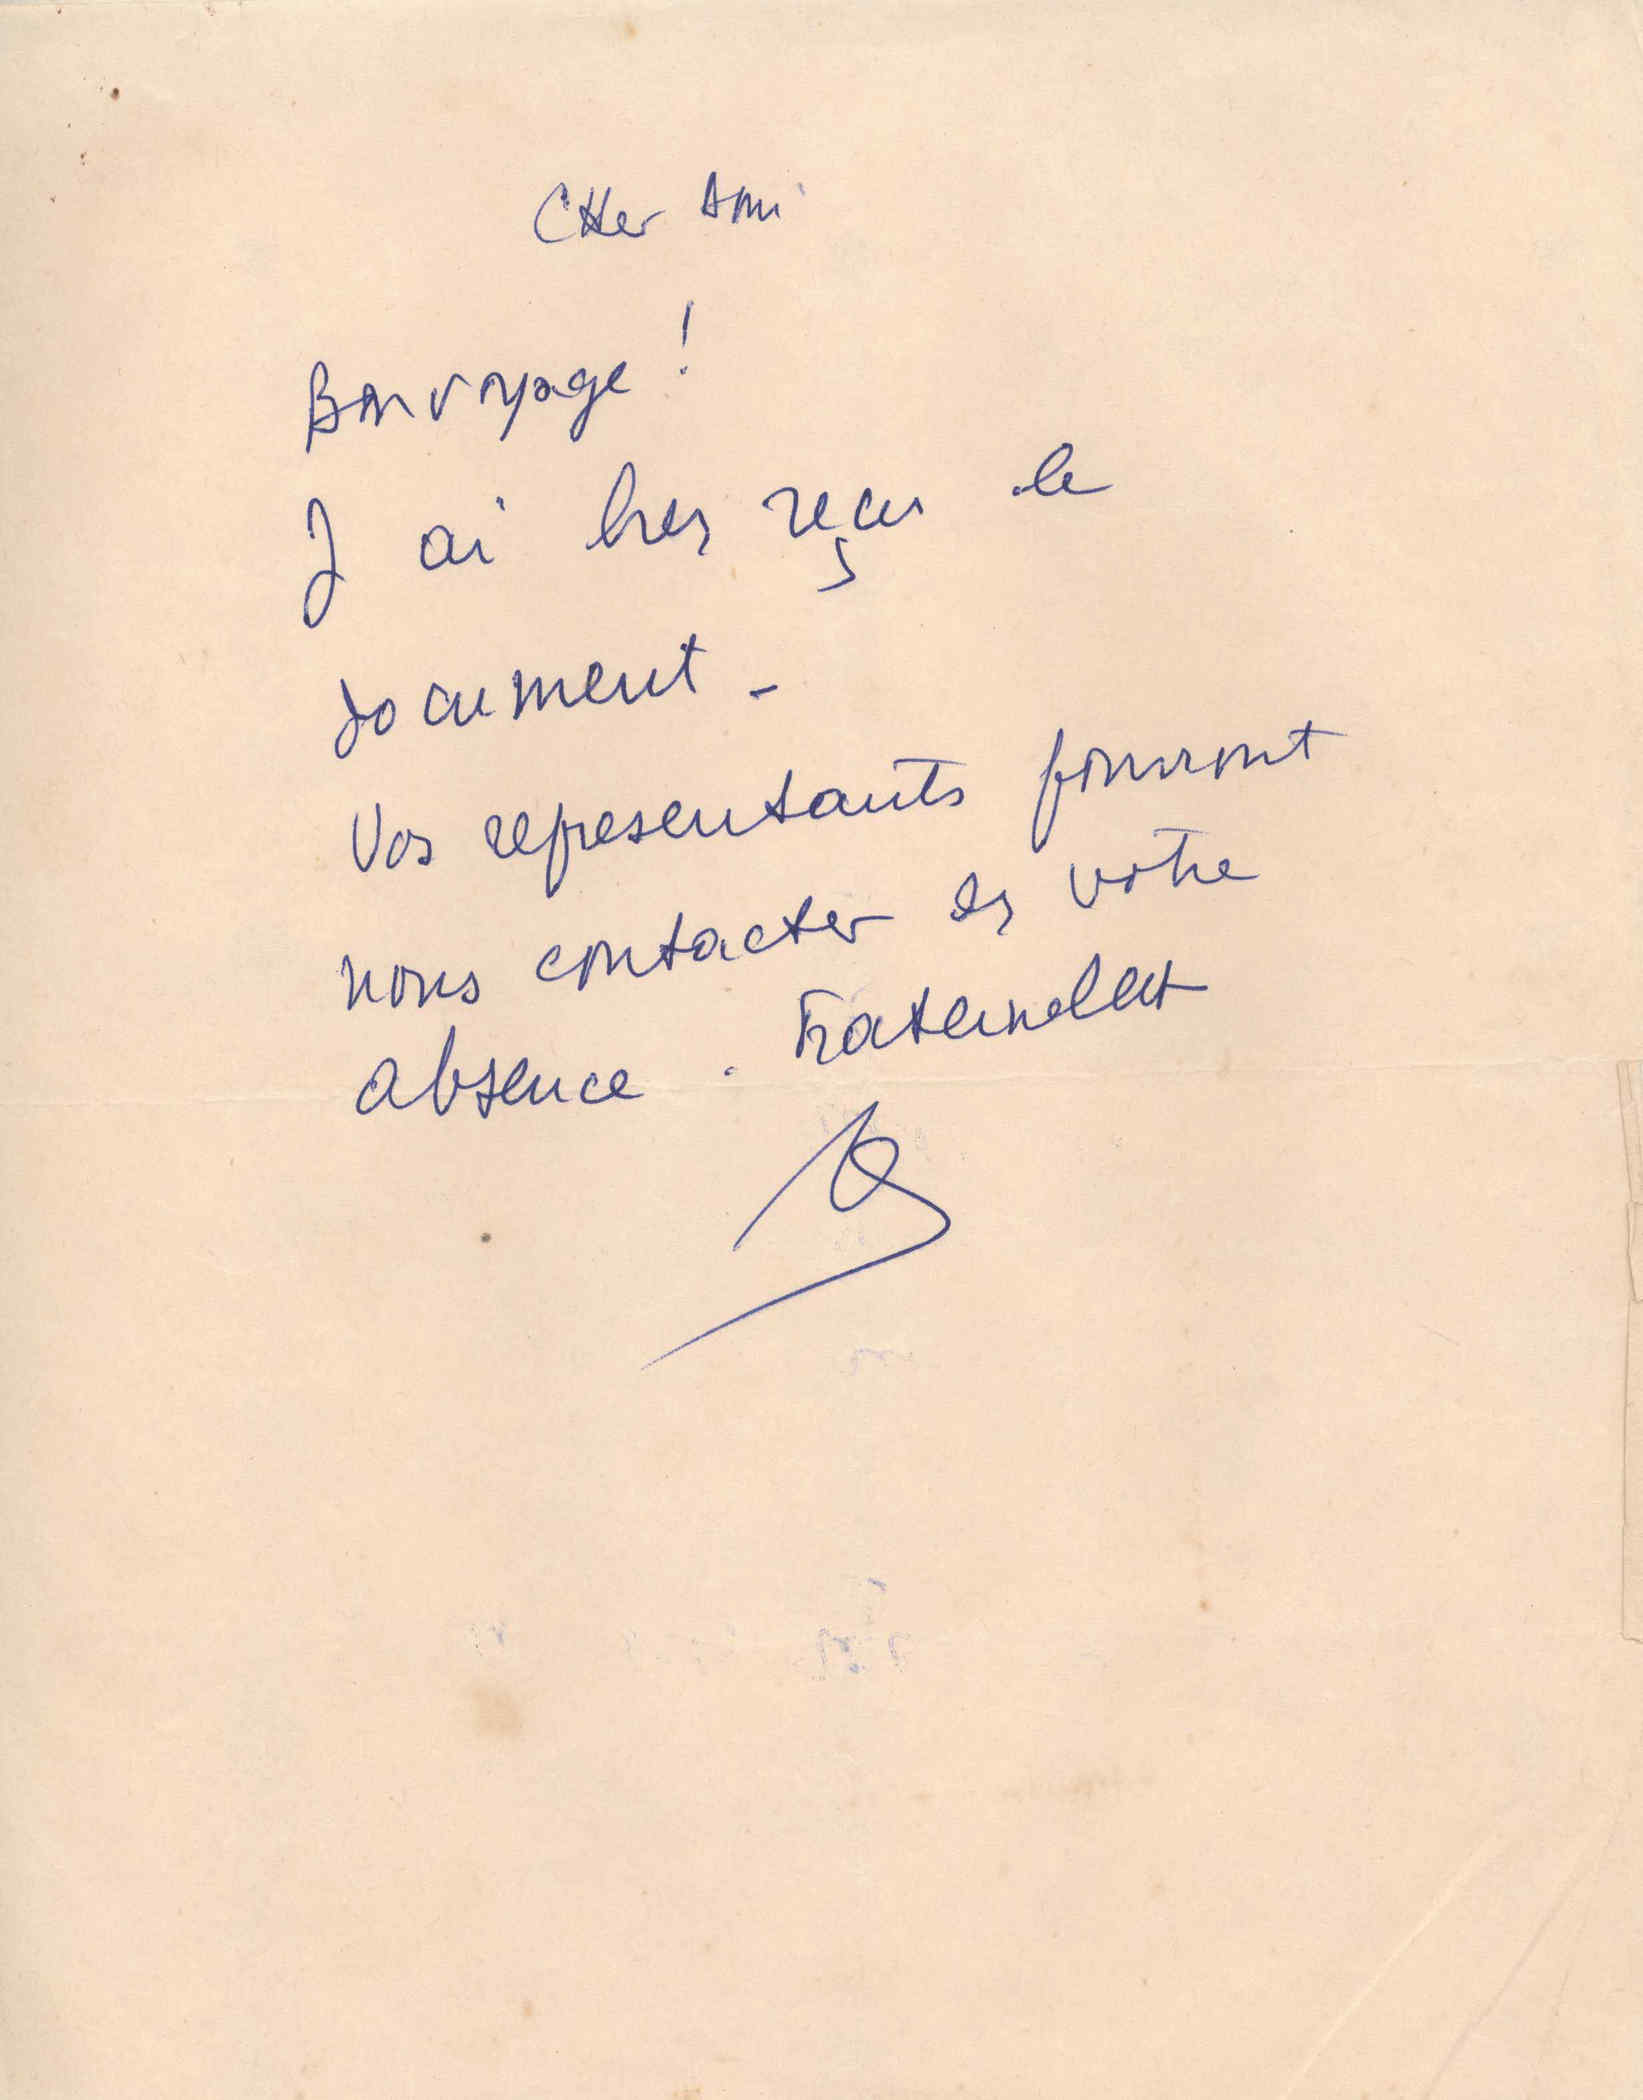 Cher Ami
Bon voyage !
J ai bien reçu le
document -
Vos representants pourront
nous contacter en votre
absence . Fraternellet